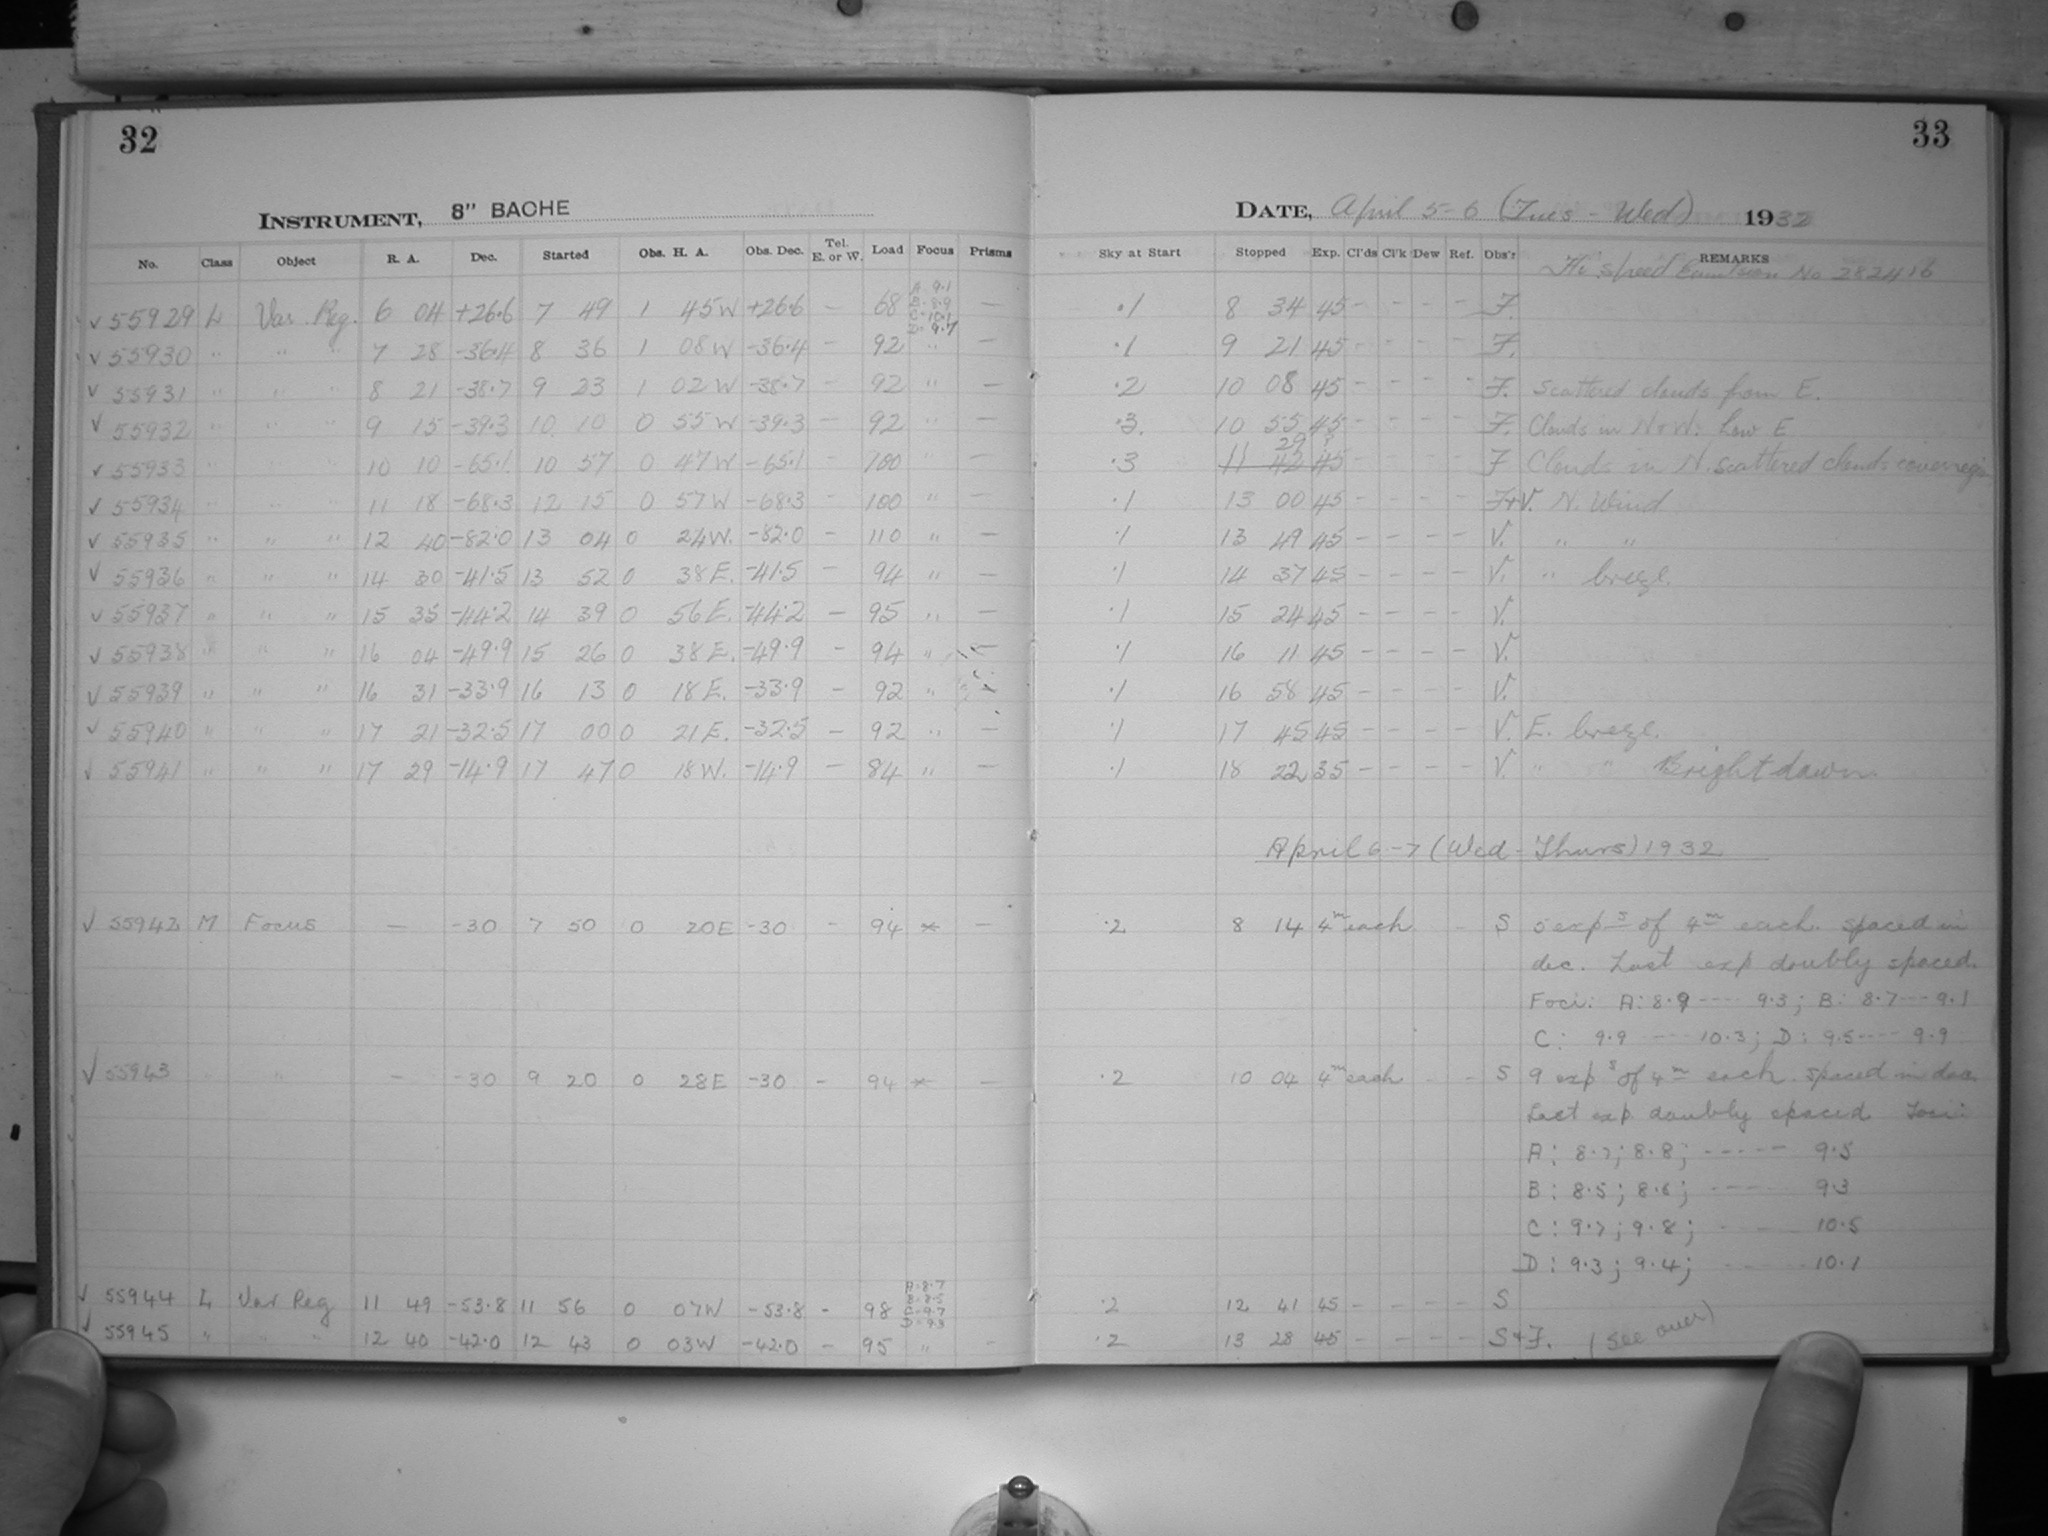 32
33
INSTRUMENT, 8" BACHE
DATE, April 5-6 (Tues - Wed) 1932
No. Class Object R. A. Dec. Started Obs. H. A. Obs. Dec. Tel. E. or W. Load Focus Prisms Sky at Start Stopped Exp. Cl'ds Cl'k Dew Ref. Obs'r REMARKS
Hi Speed Emulsion No 282416
✓ 55929 L Var. Reg. 6 04 +26.6 7 49 1 45W +26.6 – 68 A-9.1 B-8.9 C-10.1 D-9.7 — .1 8 34 45 - - - - F.
✓ 55930 " " " 7 28 -36.4 8 36 1 08W -36.4 – 92 " — .1 9 21 45 - - - - F.
✓ 55931 " " " 8 21 -38.7 9 23 1 02W -38.7 – 92 " — .2 10 08 45 - - - - F. Scattered clouds from E.
✓ 55932 " " " 9 15 -39.3 10 10 0 55W -39.3 – 92 " — .3. 10 55 45 - - - - F. Clouds in N & W. Low E
✓ 55933 " " " 10 10 -65.1 10 57 0 47W -65.1 – 100 " — .3 11 42 29 45 - - - - F Clouds in N. scattered clouds cover region
✓ 55934 " " " 11 18 -68.3 12 15 0 57W -68.3 – 100 " — .1 13 00 45 - - - - F+V. N. Wind
✓ 55935 " " " 12 40 -82.0 13 04 0 24W. -82.0 – 110 " — .1 13 49 45 - - - - V. " "
✓ 55936 " " " 14 30 -41.5 13 52 0 38E. -41.5 – 94 " — .1 14 37 45 - - - - V. " breeze.
✓ 55937 " " " 15 35 -44.2 14 39 0 56E. -44.2 – 95 " — .1 15 24 45 - - - - V.
✓ 55938 " " " 16 04 -49.9 15 26 0 38E. -49.9 – 94 " — .1 16 11 45 - - - - V.
✓ 55939 " " " 16 31 -33.9 16 13 0 18E. -33.9 – 92 " — .1 16 58 45 - - - - V.
✓ 55940 " " " 17 21 -32.5 17 00 0 21E. -32.5 – 92 " — .1 17 45 45 - - - - V. E. breeze.
✓ 55941 " " " 17 29 -14.9 17 47 0 18W. -14.9 – 84 " — .1 18 22 35 - - - - V. " " Bright dawn.
April 6-7 (Wed - Thurs) 1932
✓ 55942 M Focus — -30 7 50 0 20E -30 – 94 * — .2 8 14 4m each - S 5 exps of 4m each. spaced in
dec. Last exp doubly spaced.
Foci: A: 8.9 ---- 9.3; B: 8.7 --- 9.1
C: 9.9 ---- 10.3; D: 9.5 ---- 9.9
✓ 55943 " " — -30 9 20 0 28E -30 – 94 * — .2 10 04 4m each - S 9 exps of 4m each. spaced in dec
Last exp. doubly spaced Foci:
A: 8.7; 8.8; ----- 9.5
B: 8.5; 8.6; ---- 9.3
C: 9.7; 9.8; ---- 10.5
D: 9.3; 9.4; ----- 10.1
✓ 55944 L Var Reg 11 49 -53.8 11 56 0 07W -53.8 – 98 A-8.7 B-8.5 C-9.7 D-9.3 .2 12 41 45 - - - - S
✓ 55945 " " " 12 40 -42.0 12 43 0 03W -42.0 – 95 " - .2 13 28 45 - - - - S+F. (see over)